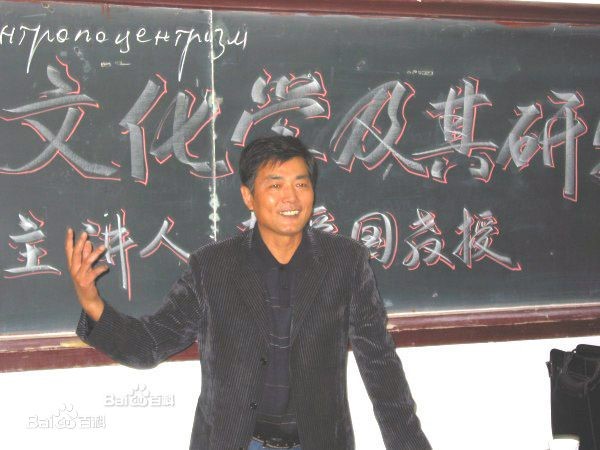 нтропоцентризм
文化学及其研
主讲人 国教授
Bai du 百科
Bai du 百科